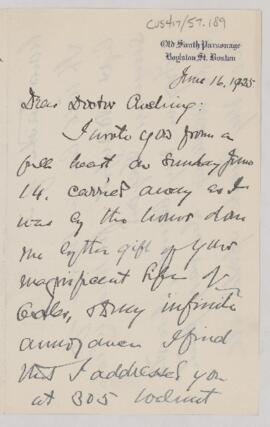 CUS417/57.189
Old South Parsonage
Boylston St. Boston
June 16, 1925
Dear Doctor Cushing:
I wrote you from a
full heart on Sunday June
14. carried away as I
was by the honor done
me by the gift of your
magnificent Life of
Osler, & to my infinite
annoyance I find
that I addressed you
at 305 Walnut